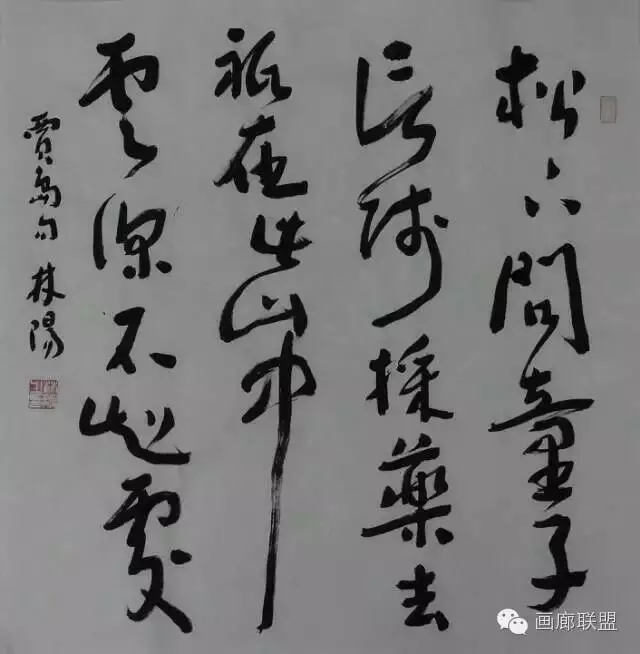 松下問童子
言師採藥去
祇在此山中
雲深不知處
賈島句 林陽
画廊联盟